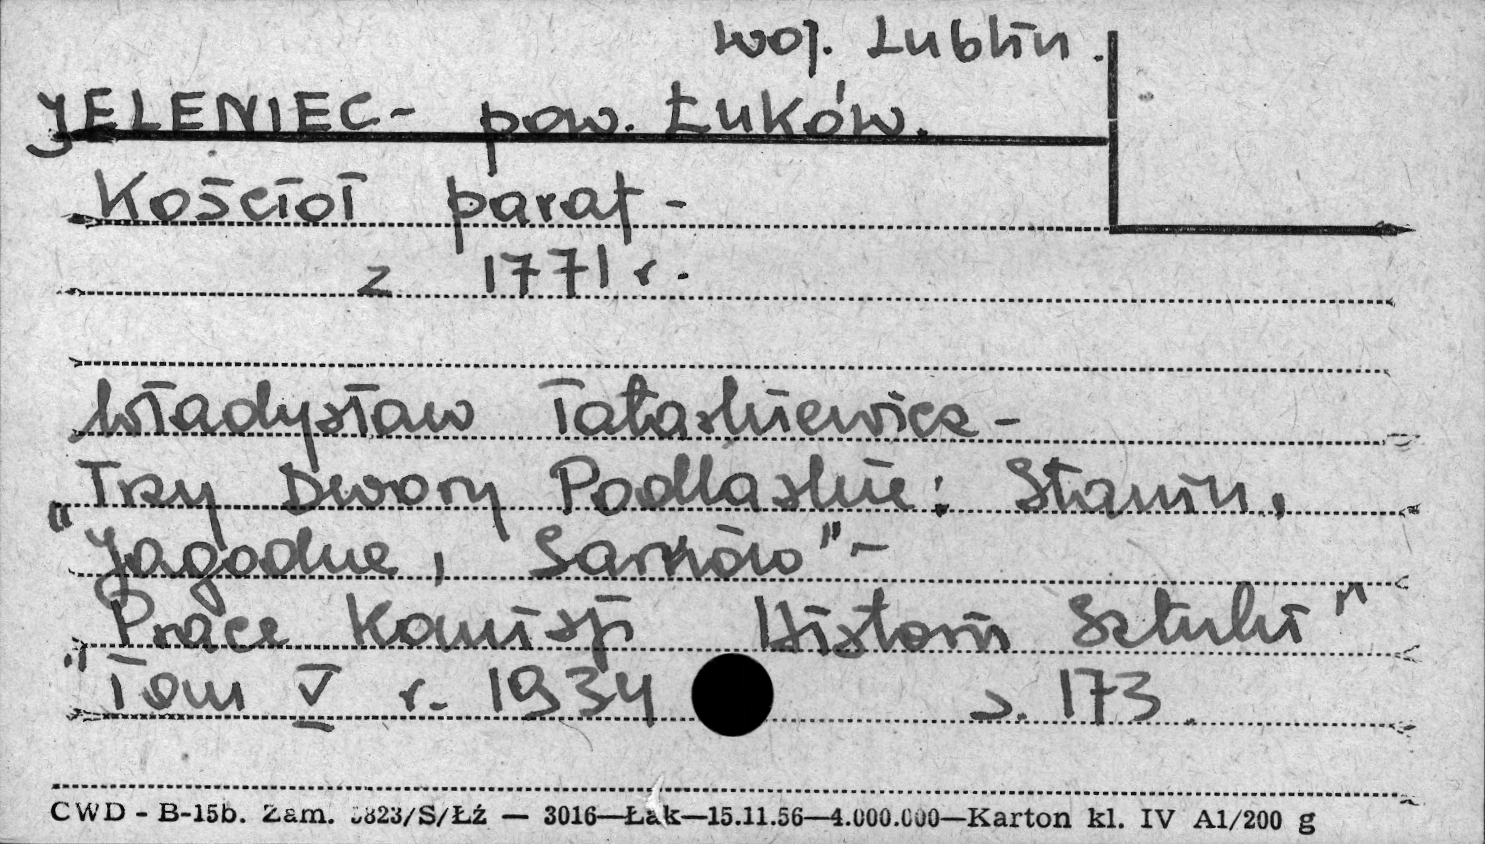 woj. Lublin.
JELENIEC- pow. Łuków.
Kościół paraf-
z 1771 r.
Władysław Tatarkiewicz-
"Trzy Dwory Podlaskie: Stanin,
Jagodne, Sarnów"-
"Prace Komisji Historii Sztuki"
Tom V r. 1934 s. 173.
CWD - B-15b. Zam. 3823/S/Łź — 3016—Łak—15.11.56—4.000.000—Karton kl. IV A1/200 g